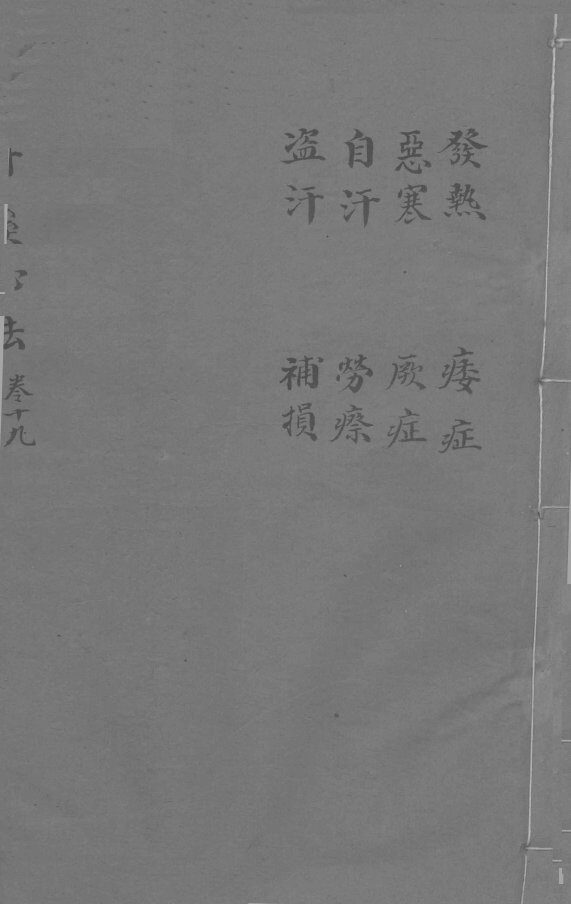 發熱
惡寒
自汗
盗汗
痿症
厥症
勞瘵
補損
法 卷十九